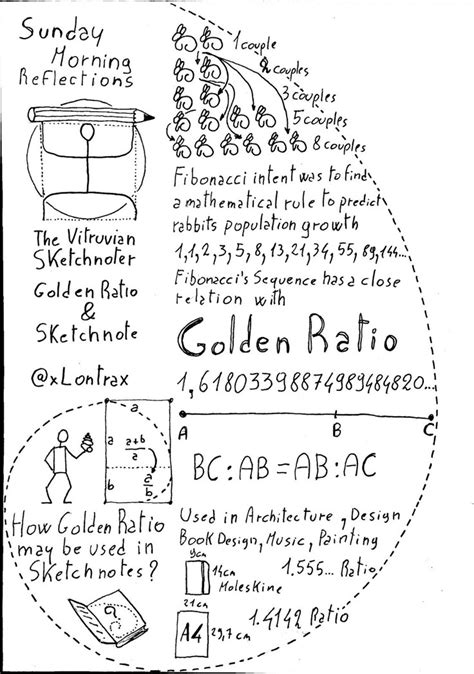 Sunday
Morning
Reflections
The Vitruvian
Sketchnoter
Golden Ratio
&
Sketchnote
@xLontrax
1 couple
2 couples
3 couples
5 couples
8 couples
Fibonacci intent was to find
a mathematical rule to predict
rabbits population growth
1,1,2,3,5,8,13,21,34,55,89,144...
Fibonacci's Sequence has a close
relation with
Golden Ratio
1,61803398874989484820...
A B C
BC:AB=AB:AC
a
a
a+b
a
b
a
b
How Golden Ratio
may be used in
Sketchnotes?
?
Used in Architecture, Design
Book Design, Music, Painting
9cm
14cm
Moleskine
1.555... Ratio
21cm
A4
29,7cm
1.4142 Ratio